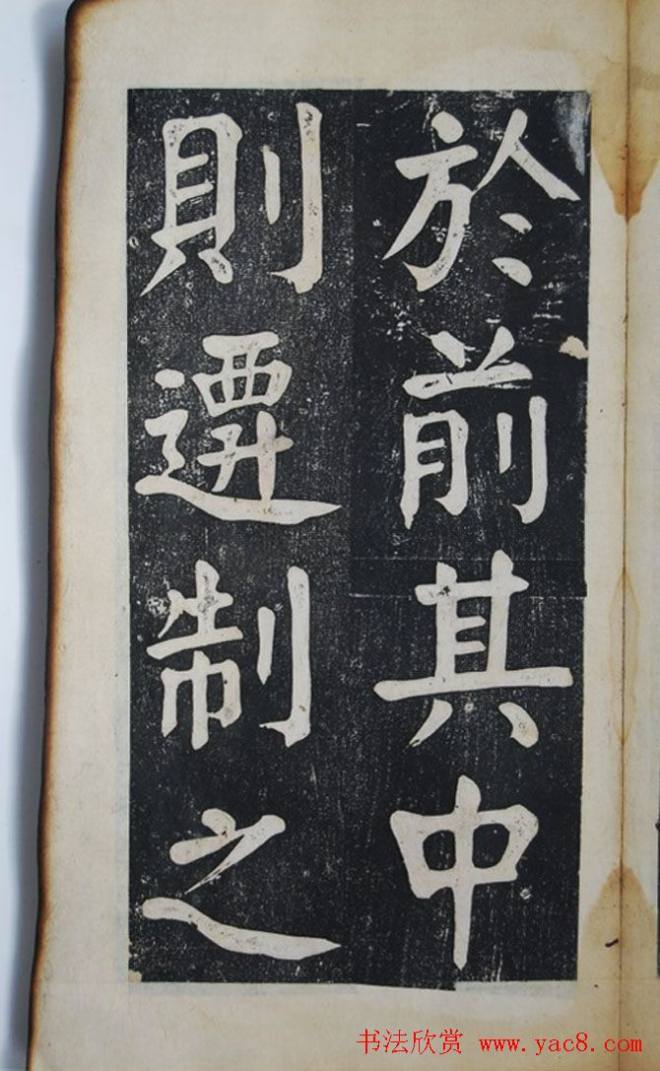 於前其中
則遷制之
书法欣赏 www.yac8.com